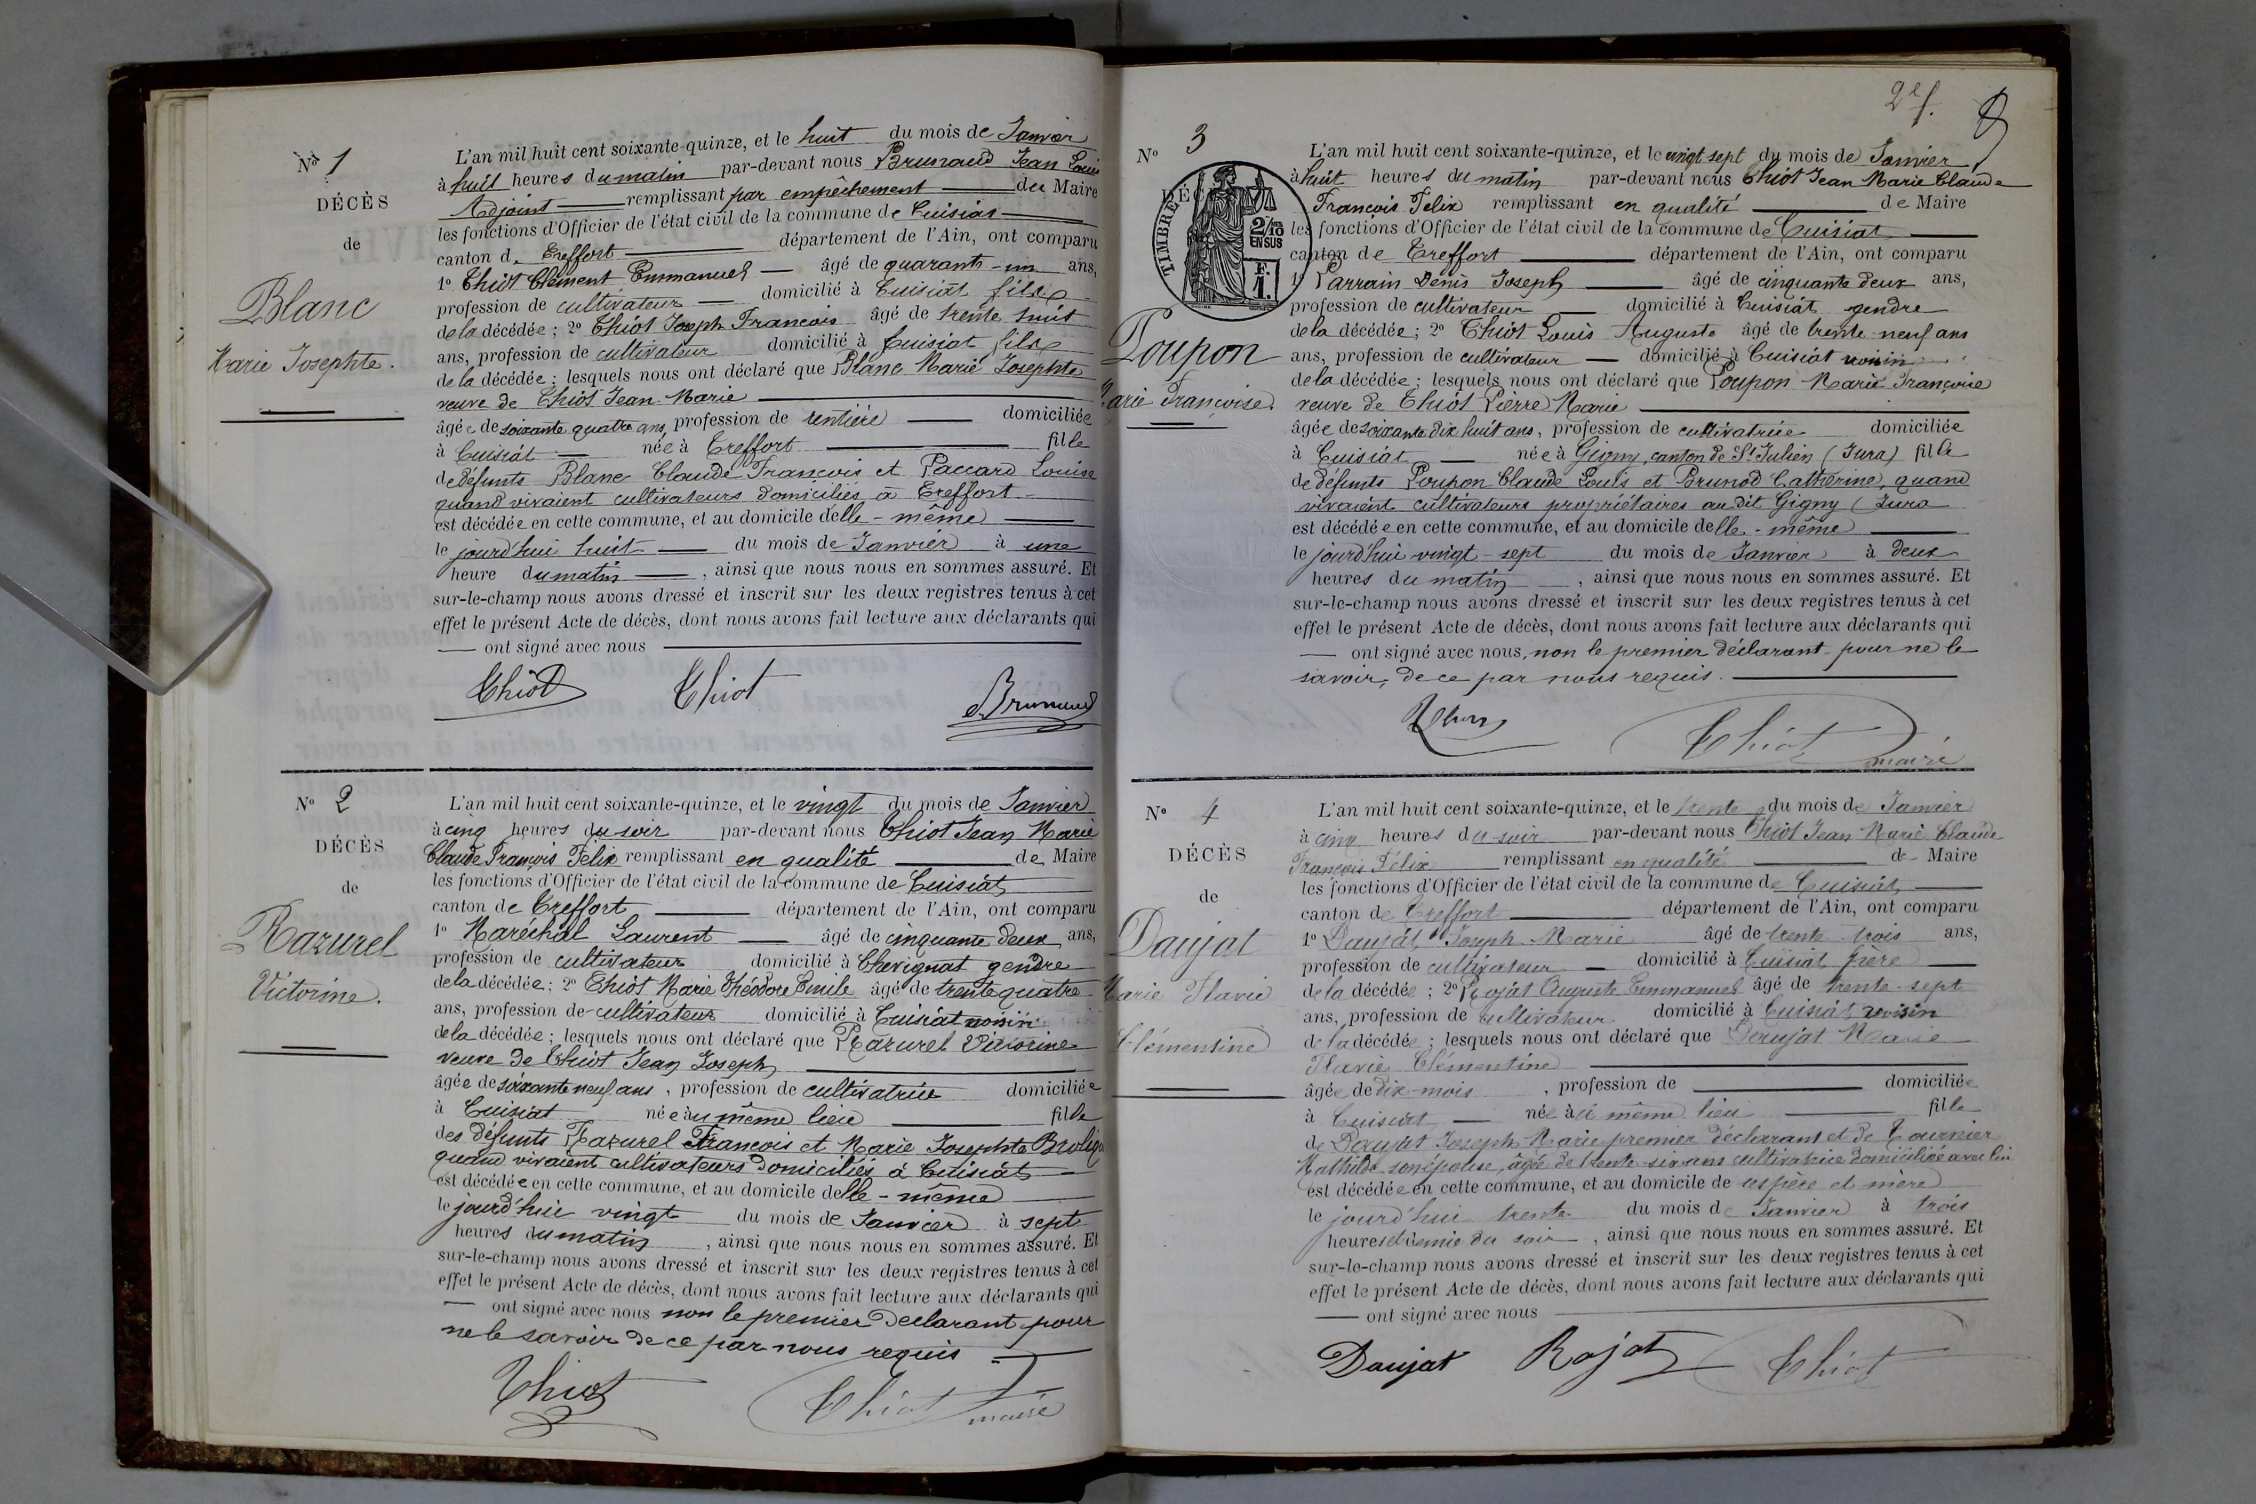 No 1
DÉCÈS
de
Blanc
Marie Josephte.
L'an mil huit cent soixante-quinze, et le huit du mois de Janvier
à huit heures du matin par-devant nous Brunaud Jean Louis
Adjoint remplissant par empêchement du Maire
les fonctions d'Officier de l'état civil de la commune de Cuisiat
canton de Treffort département de l'Ain, ont comparu
1º Chiot Clément Emmanuel âgé de quarante-un ans,
profession de cultivateur domicilié à Cuisiat fils
de la décédée; 2º Chiot Joseph François âgé de trente huit
ans, profession de cultivateur domicilié à Cuisiat fils
de la décédée; lesquels nous ont déclaré que Blanc Marie Josephte
veuve de Chiot Jean-Marie
âgée de soixante quatre ans, profession de rentière domiciliée
à Cuisiat née à Treffort fille
de défunts Blanc Claude François et Paccard Louise
quand vivaient cultivateurs domiciliés à Treffort
est décédée en cette commune, et au domicile d'elle-même
le jourd'hui huit du mois de Janvier à une
heure du matin, ainsi que nous nous en sommes assuré. Et
sur-le-champ nous avons dressé et inscrit sur les deux registres tenus à cet
effet le présent Acte de décès, dont nous avons fait lecture aux déclarants qui
ont signé avec nous
Chiot Chiot Brunaud
No 2
DÉCÈS
de
Mazurel
Victorine.
L'an mil huit cent soixante-quinze, et le vingt du mois de Janvier
à cinq heures du soir par-devant nous Chiot Jean Marie
Claude François Félix remplissant en qualité de Maire
les fonctions d'Officier de l'état civil de la commune de Cuisiat
canton de Treffort département de l'Ain, ont comparu
1º Maréchal Laurent âgé de cinquante deux ans,
profession de cultivateur domicilié à Chevignat gendre
de la décédée; 2º Chiot Marie Théodore Emile âgé de trente quatre
ans, profession de cultivateur domicilié à Cuisiat voisin
de la décédée; lesquels nous ont déclaré que Mazurel Victorine
veuve de Chiot Jean Joseph
âgée de soixante neuf ans, profession de cultivatrice domiciliée
à Cuisiat née au même lieu fille
des défunts Mazurel François et Marie Josephte
quand vivaient cultivateurs domiciliés à Cuisiat
est décédée en cette commune, et au domicile d'elle-même
le jourd'hui vingt du mois de Janvier à sept
heures du matin, ainsi que nous nous en sommes assuré. Et
sur-le-champ nous avons dressé et inscrit sur les deux registres tenus à cet
effet le présent Acte de décès, dont nous avons fait lecture aux déclarants qui
ont signé avec nous non le premier déclarant pour
ne le savoir de ce par nous requis
Chiot Chiot maire
2e f.
No 3
TIMBRE
2/10
EN SUS
F.
1.
Poupon
Marie Françoise.
L'an mil huit cent soixante-quinze, et le vingt sept du mois de Janvier
à huit heures du matin par-devant nous Chiot Jean Marie Claude
François Félix remplissant en qualité de Maire
les fonctions d'Officier de l'état civil de la commune de Cuisiat
canton de Treffort département de l'Ain, ont comparu
1º Parrain Denis Joseph âgé de cinquante deux ans,
profession de cultivateur domicilié à Cuisiat gendre
de la décédée; 2º Chiot Louis Auguste âgé de trente neuf ans
ans, profession de cultivateur domicilié à Cuisiat voisin
de la décédée; lesquels nous ont déclaré que Poupon Marie Françoise
veuve de Chiot Pierre Marie
âgée de soixante dix huit ans, profession de cultivatrice domiciliée
à Cuisiat née à Gigny, canton de St Julien (Jura) fille
de défunts Poupon Claude Louis et Brunod Catherine, quand
vivaient cultivateurs propriétaires au dit Gigny (Jura
est décédée en cette commune, et au domicile d'elle-même
le jourd'hui vingt-sept du mois de Janvier à deux
heures du matin, ainsi que nous nous en sommes assuré. Et
sur-le-champ nous avons dressé et inscrit sur les deux registres tenus à cet
effet le présent Acte de décès, dont nous avons fait lecture aux déclarants qui
ont signé avec nous, non le premier déclarant pour ne le
savoir, de ce par nous requis.
Chiot
maire
No 4
DÉCÈS
de
Daujat
Marie Flavie
Clémentine
L'an mil huit cent soixante-quinze, et le trente du mois de Janvier
à cinq heures du soir par-devant nous Chiot Jean Marie Claude
François Félix remplissant en qualité de Maire
les fonctions d'Officier de l'état civil de la commune de Cuisiat
canton de Treffort département de l'Ain, ont comparu
1º Daujat Joseph Marie âgé de trente trois ans,
profession de cultivateur domicilié à Cuisiat père
de la décédée; 2º Rojat Auguste Emmanuel âgé de trente-sept
ans, profession de cultivateur domicilié à Cuisiat voisin
de la décédée; lesquels nous ont déclaré que Daujat Marie
Flavie Clémentine
âgée de dix-mois, profession de domiciliée
à Cuisiat née à même lieu fille
de Daujat Joseph-Marie premier déclarant et de Tournier
Mathilde son épouse, âgée de trente-six ans cultivatrice domiciliée avec lui
est décédée en cette commune, et au domicile de ses père et mère
le jourd'hui trente du mois de Janvier à trois
heures et demie du soir, ainsi que nous nous en sommes assuré. Et
sur-le-champ nous avons dressé et inscrit sur les deux registres tenus à cet
effet le présent Acte de décès, dont nous avons fait lecture aux déclarants qui
ont signé avec nous
Daujat Rojat Chiot